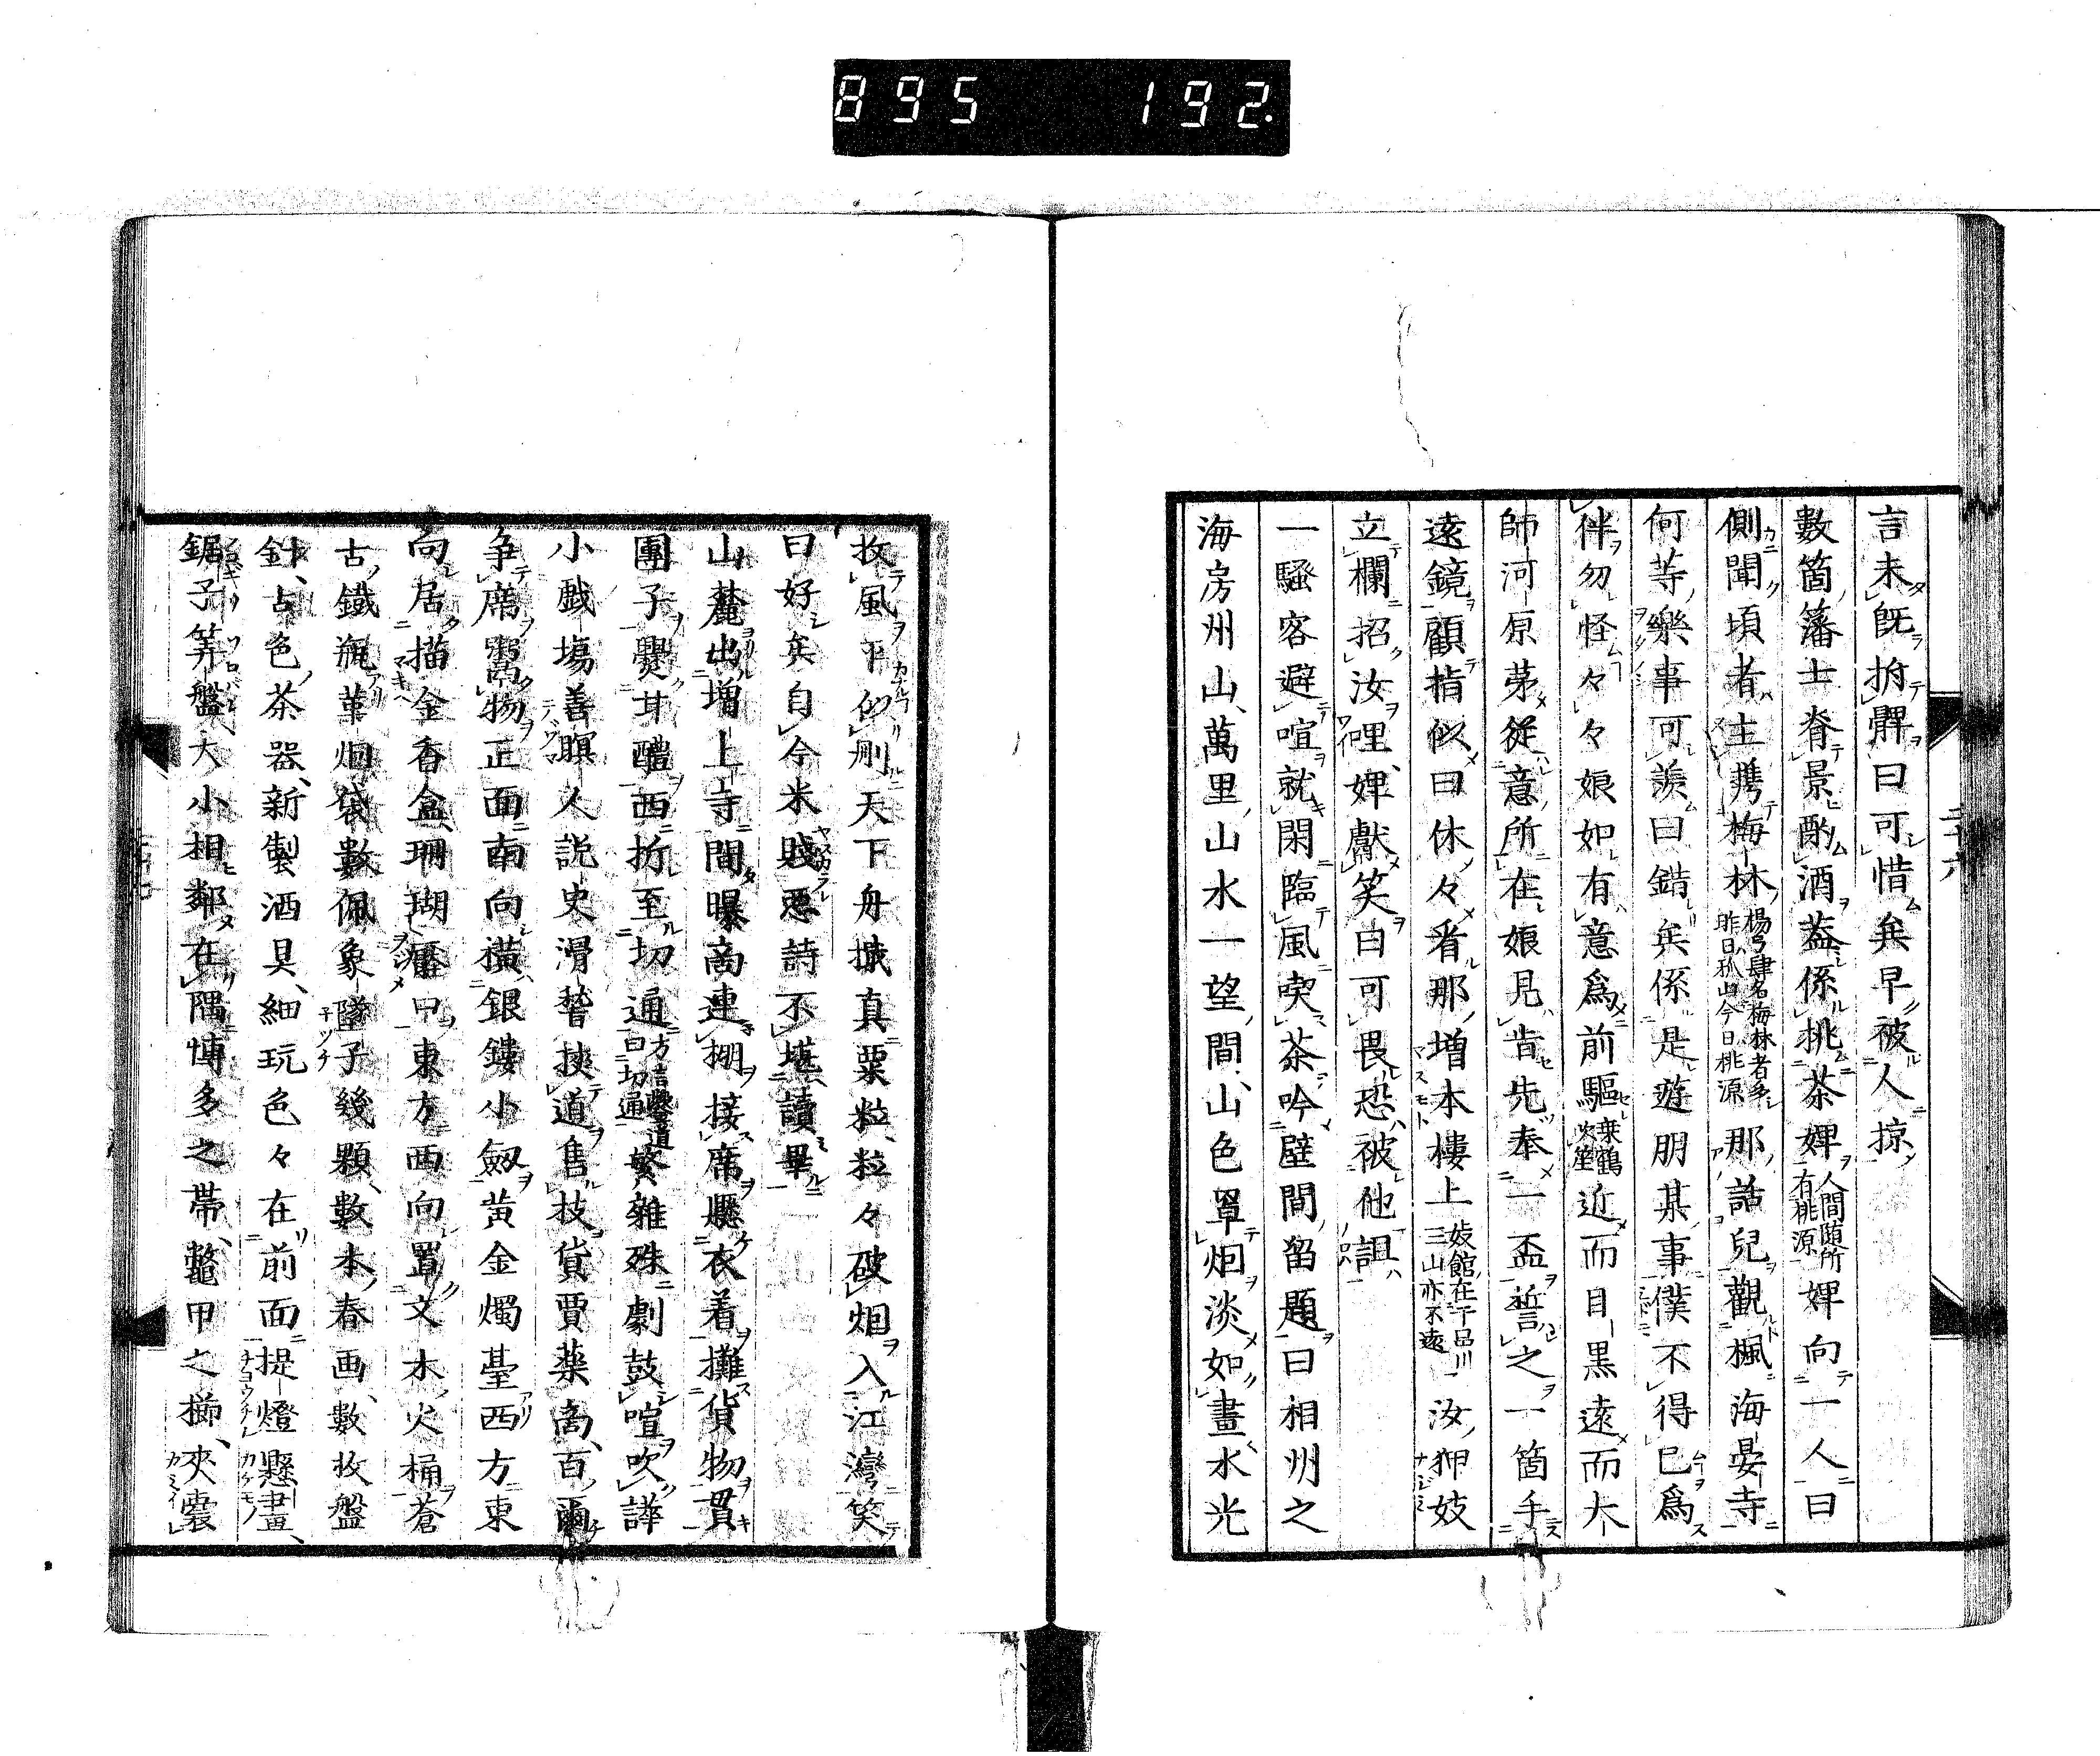 895 192.
二十六
言未既拊髀曰可惜矣早被人掠
數箇藩士脊景酌酒蓋係挑茶婢人間随所有桃源婢向一人曰
側聞頃者主携梅林楊弓肆名梅林者多昨日孤山今日桃源那話兒觀楓海晏寺
何等樂事可羨曰錯矣係是遊朋某事僕不得已爲
伴勿怪々々娘如有意爲前驅乗鶴吹笙近而目黒遠而大
師河原茅從意所在娘見肯先奉一盃誓之一箇手
遠鏡顧指似曰休々看那増本樓上妓館在于品川三山亦不遠汝狎妓
立欄招汝哩婢獻笑曰可畏恐被他詛
一騷客避喧就閑臨風喫茶吟壁間留題曰相州之
海房州山萬里山水一望間山色罩烟淡如畫水光
收風平似刷天下舟檝真粟粒粒々破烟入江灣笑
曰好矣自今米賤悪詩不堪讀畢
山麓出増上寺間曝商連棚接席懸衣着攤貨物貫
團子爨甘醴西折至切通方言鑿道曰切通繁雜殊劇鼓喧吹譁
小戯塲善瞑人説史滑稽挾道售技貨賈薬商百鬻
争席鬻物正面南向横銀鏤小劔黄金燭臺西方東
向居描金香盒珊瑚癧曰東方西向置文木火桶蒼
古鐵瓶革烟袋數佩象墜子幾顆數本春画數枚盤
針古色茶器新製酒具細玩色々在前面提燈懸畫
鋸子筭盤大小相鄰在隅博多之帯鼈甲之櫛夾嚢